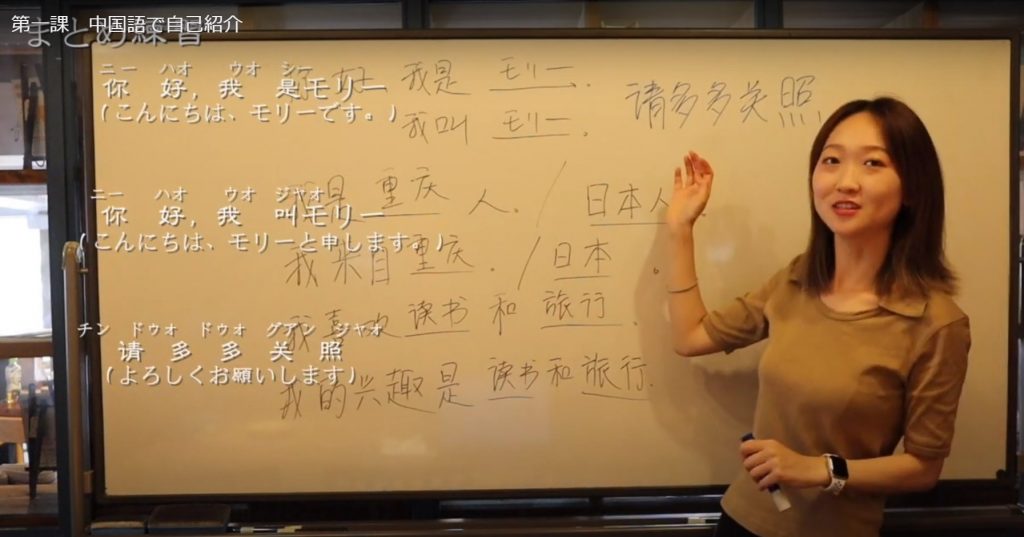 第一課 中国語で自己紹介
まとめ練習
ニー ハオ ウオ シー
你 好，我 是モリー
（こんにちは、モリーです。）
ニー ハオ ウオ ジャオ
你 好，我 叫モリー
（こんにちは、モリーと申します。）
チン ドゥオ ドゥオ グアン ジャオ
请 多 多 关 照
（よろしくお願いします）
你好 我是 モリー.
我叫 モリー.
请多多关照
我是 重庆 人. / 日本人.
我来自 重庆. / 日本。
我喜欢 读书 和 旅行.
我的兴趣是 读书和旅行.